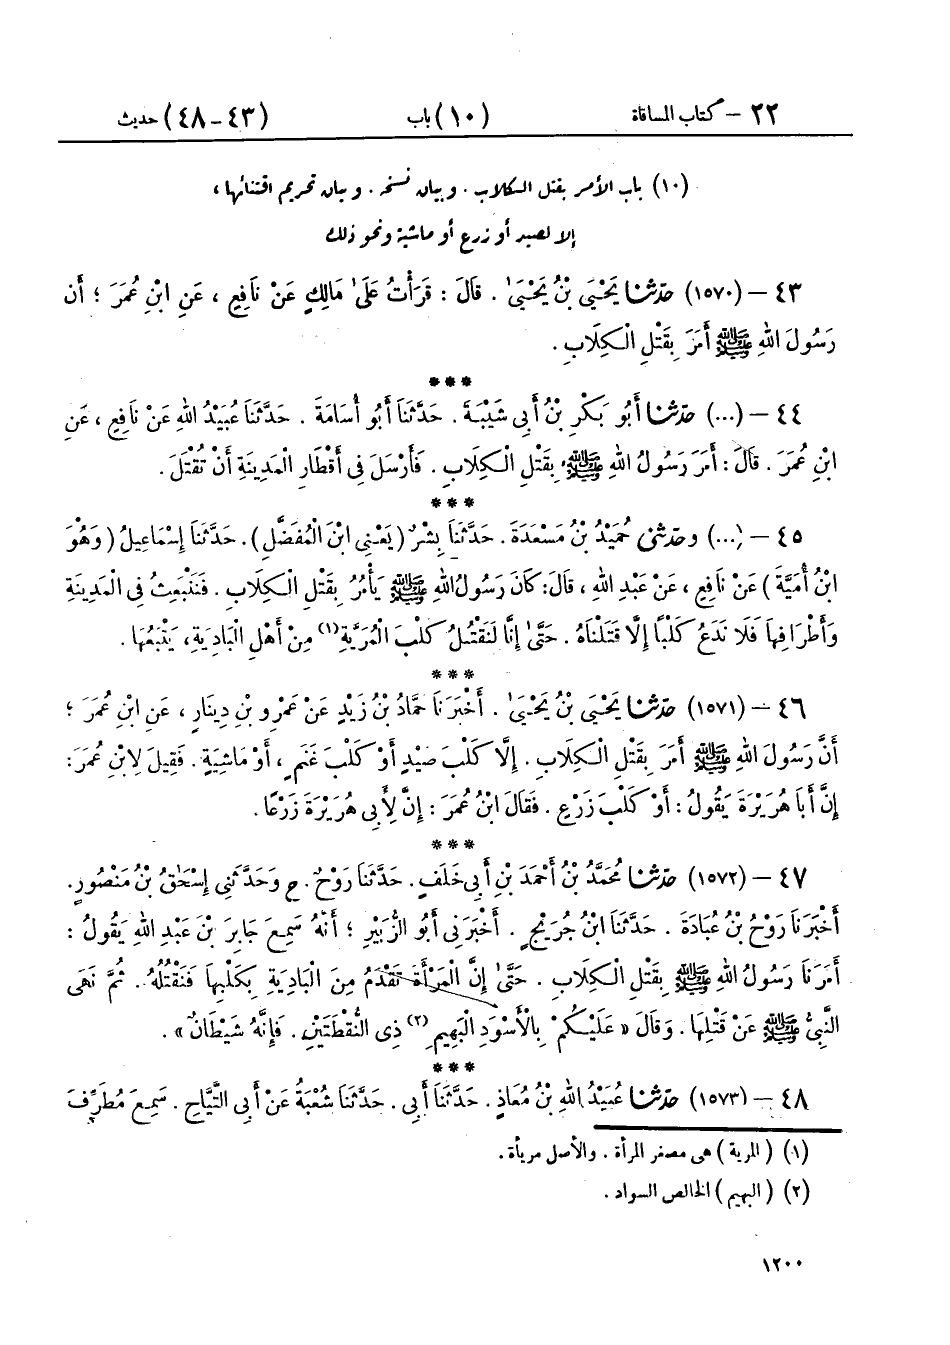 ٢٢ – كتاب المساقاة (١٠) باب (٤٣ – ٤٨) حديث
(١٠) باب الأمر بقتل الكلاب . وبيان نسخه . وبيان تحريم اقتنائها ،
إلا لصيد أو زرع أو ماشية ونحو ذلك
٤٣ – (١٥٧٠) حَدَّثَنَا يَحْيَىٰ بْنُ يَحْيَىٰ . قَالَ : قَرَأْتُ عَلَىٰ مَالِكٍ عَنْ نَافِعٍ ، عَنِ ابْنِ عُمَرَ ؛ أَن
رَسُولَ اللهِ ﷺ أَمَرَ بِقَتْلِ الْكِلَابِ .
***
٤٤ – (...) حَدَّثَنَا أَبُو بَكْرِ بْنُ أَبِي شَيْبَةَ . حَدَّثَنَا أَبُو أُسَامَةَ . حَدَّثَنَا عُبَيْدُ اللهِ عَنْ نَافِعٍ ، عَنِ
ابْنِ عُمَرَ . قَالَ : أَمَرَ رَسُولُ اللهِ ﷺ بِقَتْلِ الْكِلَابِ . فَأَرْسَلَ فِي أَقْطَارِ الْمَدِينَةِ أَنْ تُقْتَلَ .
***
٤٥ – (...) وحَدَّثَنِي حُمَيْدُ بْنُ مَسْعَدَةَ . حَدَّثَنَا بِشْرٌ ( يَعْنِي ابْنَ الْمُفَضَّلِ ) . حَدَّثَنَا إِسْمَاعِيلُ ( وَهْوَ
ابْنُ أُمَيَّةَ ) عَنْ نَافِعٍ ، عَنْ عَبْدِ اللهِ ، قَالَ : كَانَ رَسُولُ اللهِ ﷺ يَأْمُرُ بِقَتْلِ الْكِلَابِ . فَنَنْبَعِثُ فِي الْمَدِينَةِ
وَأَطْرَافِهَا فَلَا نَدَعُ كَلْبًا إِلَّا قَتَلْنَاهُ . حَتَّىٰ إِنَّا لَنَقْتُلُ كَلْبَ الْمُرَيَّةِ (١) مِنْ أَهْلِ الْبَادِيَةِ ، يَتْبَعُهَا .
***
٤٦ – (١٥٧١) حَدَّثَنَا يَحْيَىٰ بْنُ يَحْيَىٰ . أَخْبَرَنَا حَمَّادُ بْنُ زَيْدٍ عَنْ عَمْرِو بْنِ دِينَارٍ ، عَنِ ابْنِ عُمَرَ ؛
أَنَّ رَسُولَ اللهِ ﷺ أَمَرَ بِقَتْلِ الْكِلَابِ . إِلَّا كَلْبَ صَيْدٍ أَوْ كَلْبَ غَنَمٍ ، أَوْ مَاشِيَةٍ . فَقِيلَ لِابْنِ عُمَرَ :
إِنَّ أَبَا هُرَيْرَةَ يَقُولُ : أَوْ كَلْبَ زَرْعٍ . فَقَالَ ابْنُ عُمَرَ : إِنَّ لِأَبِي هُرَيْرَةَ زَرْعًا .
***
٤٧ – (١٥٧٢) حَدَّثَنَا مُحَمَّدُ بْنُ أَحْمَدَ بْنِ أَبِي خَلَفٍ . حَدَّثَنَا رَوْحٌ . ح وَحَدَّثَنِي إِسْحَاقُ بْنُ مَنْصُورٍ .
أَخْبَرَنَا رَوْحُ بْنُ عُبَادَةَ . حَدَّثَنَا ابْنُ جُرَيْجٍ . أَخْبَرَنِي أَبُو الزُّبَيْرِ ؛ أَنَّهُ سَمِعَ جَابِرَ بْنَ عَبْدِ اللهِ يَقُولُ :
أَمَرَنَا رَسُولُ اللهِ ﷺ بِقَتْلِ الْكِلَابِ . حَتَّىٰ إِنَّ الْمَرْأَةَ تَقْدَمُ مِنَ الْبَادِيَةِ بِكَلْبِهَا فَنَقْتُلُهُ . ثُمَّ نَهَى
النَّبِيُّ ﷺ عَنْ قَتْلِهَا . وَقَالَ « عَلَيْكُمْ بِالْأَسْوَدِ الْبَهِيمِ (٢) ذِي النُّقْطَتَيْنِ . فَإِنَّهُ شَيْطَانٌ » .
***
٤٨ – (١٥٧٣) حَدَّثَنَا عُبَيْدُ اللهِ بْنُ مُعَاذٍ . حَدَّثَنَا أَبِي . حَدَّثَنَا شُعْبَةُ عَنْ أَبِي التَّيَّاحِ . سَمِعَ مُطَرِّفَ
(١) ( المرية ) هى مصغر المرأة . والأصل مريأة .
(٢) ( البهيم ) الخالص السواد .
١٢٠٠